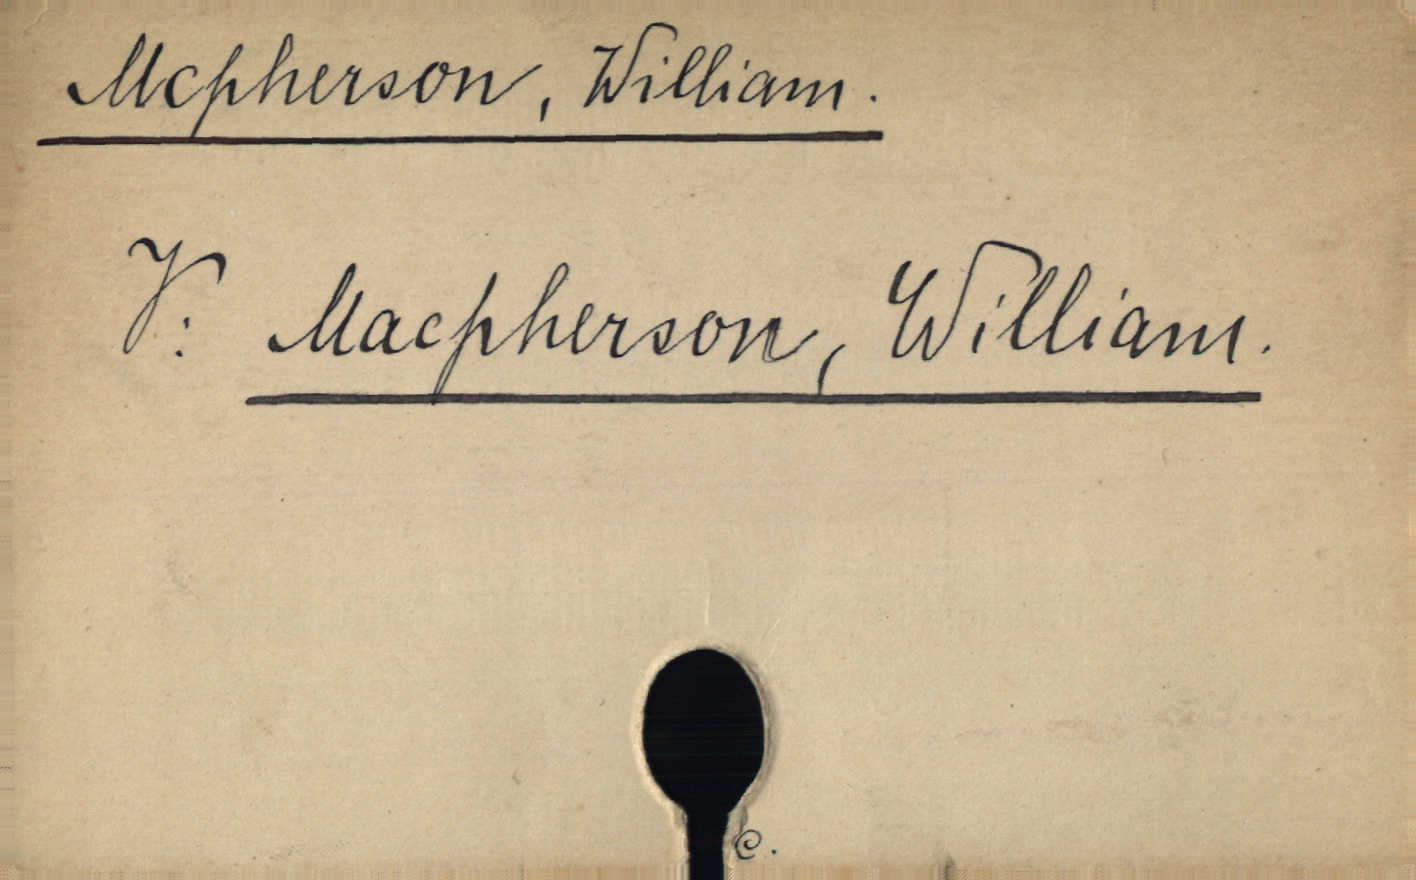 Mcpherson, William.
V: Macpherson, William.
c.